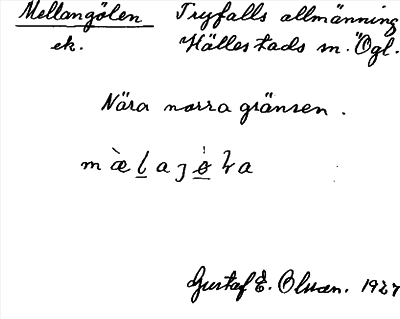 Mellangölen Tryfalls allmänning
ek. Hällestads sn. Ögl.
Nära norra gränsen.
Gustaf E. Olsson. 1927